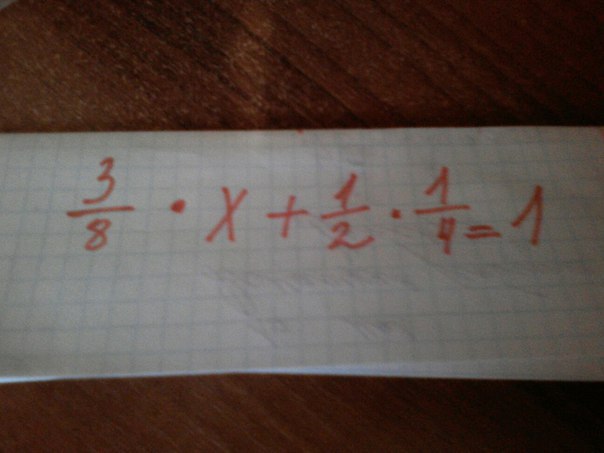 3/8 · X + 1/2 · 1/4 = 1